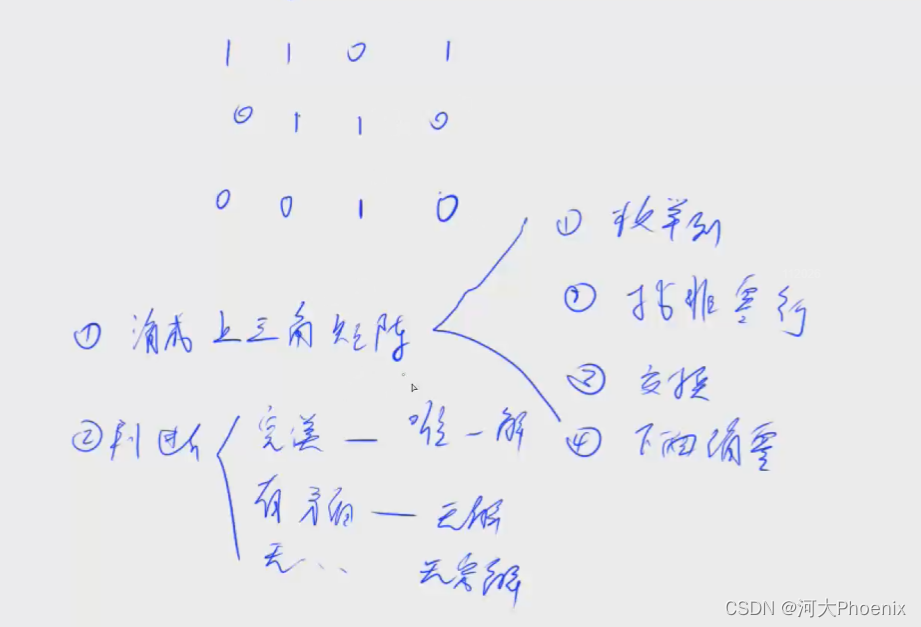 1 1 0 1
0 1 1 0
0 0 1 0
① 消成上三角矩阵
① 枚举列
② 找非零行
③ 交换
④ 下面消零
② 判断
完美 — 唯一解
有矛盾 — 无解
无... 无穷解
CSDN @河大Phoenix